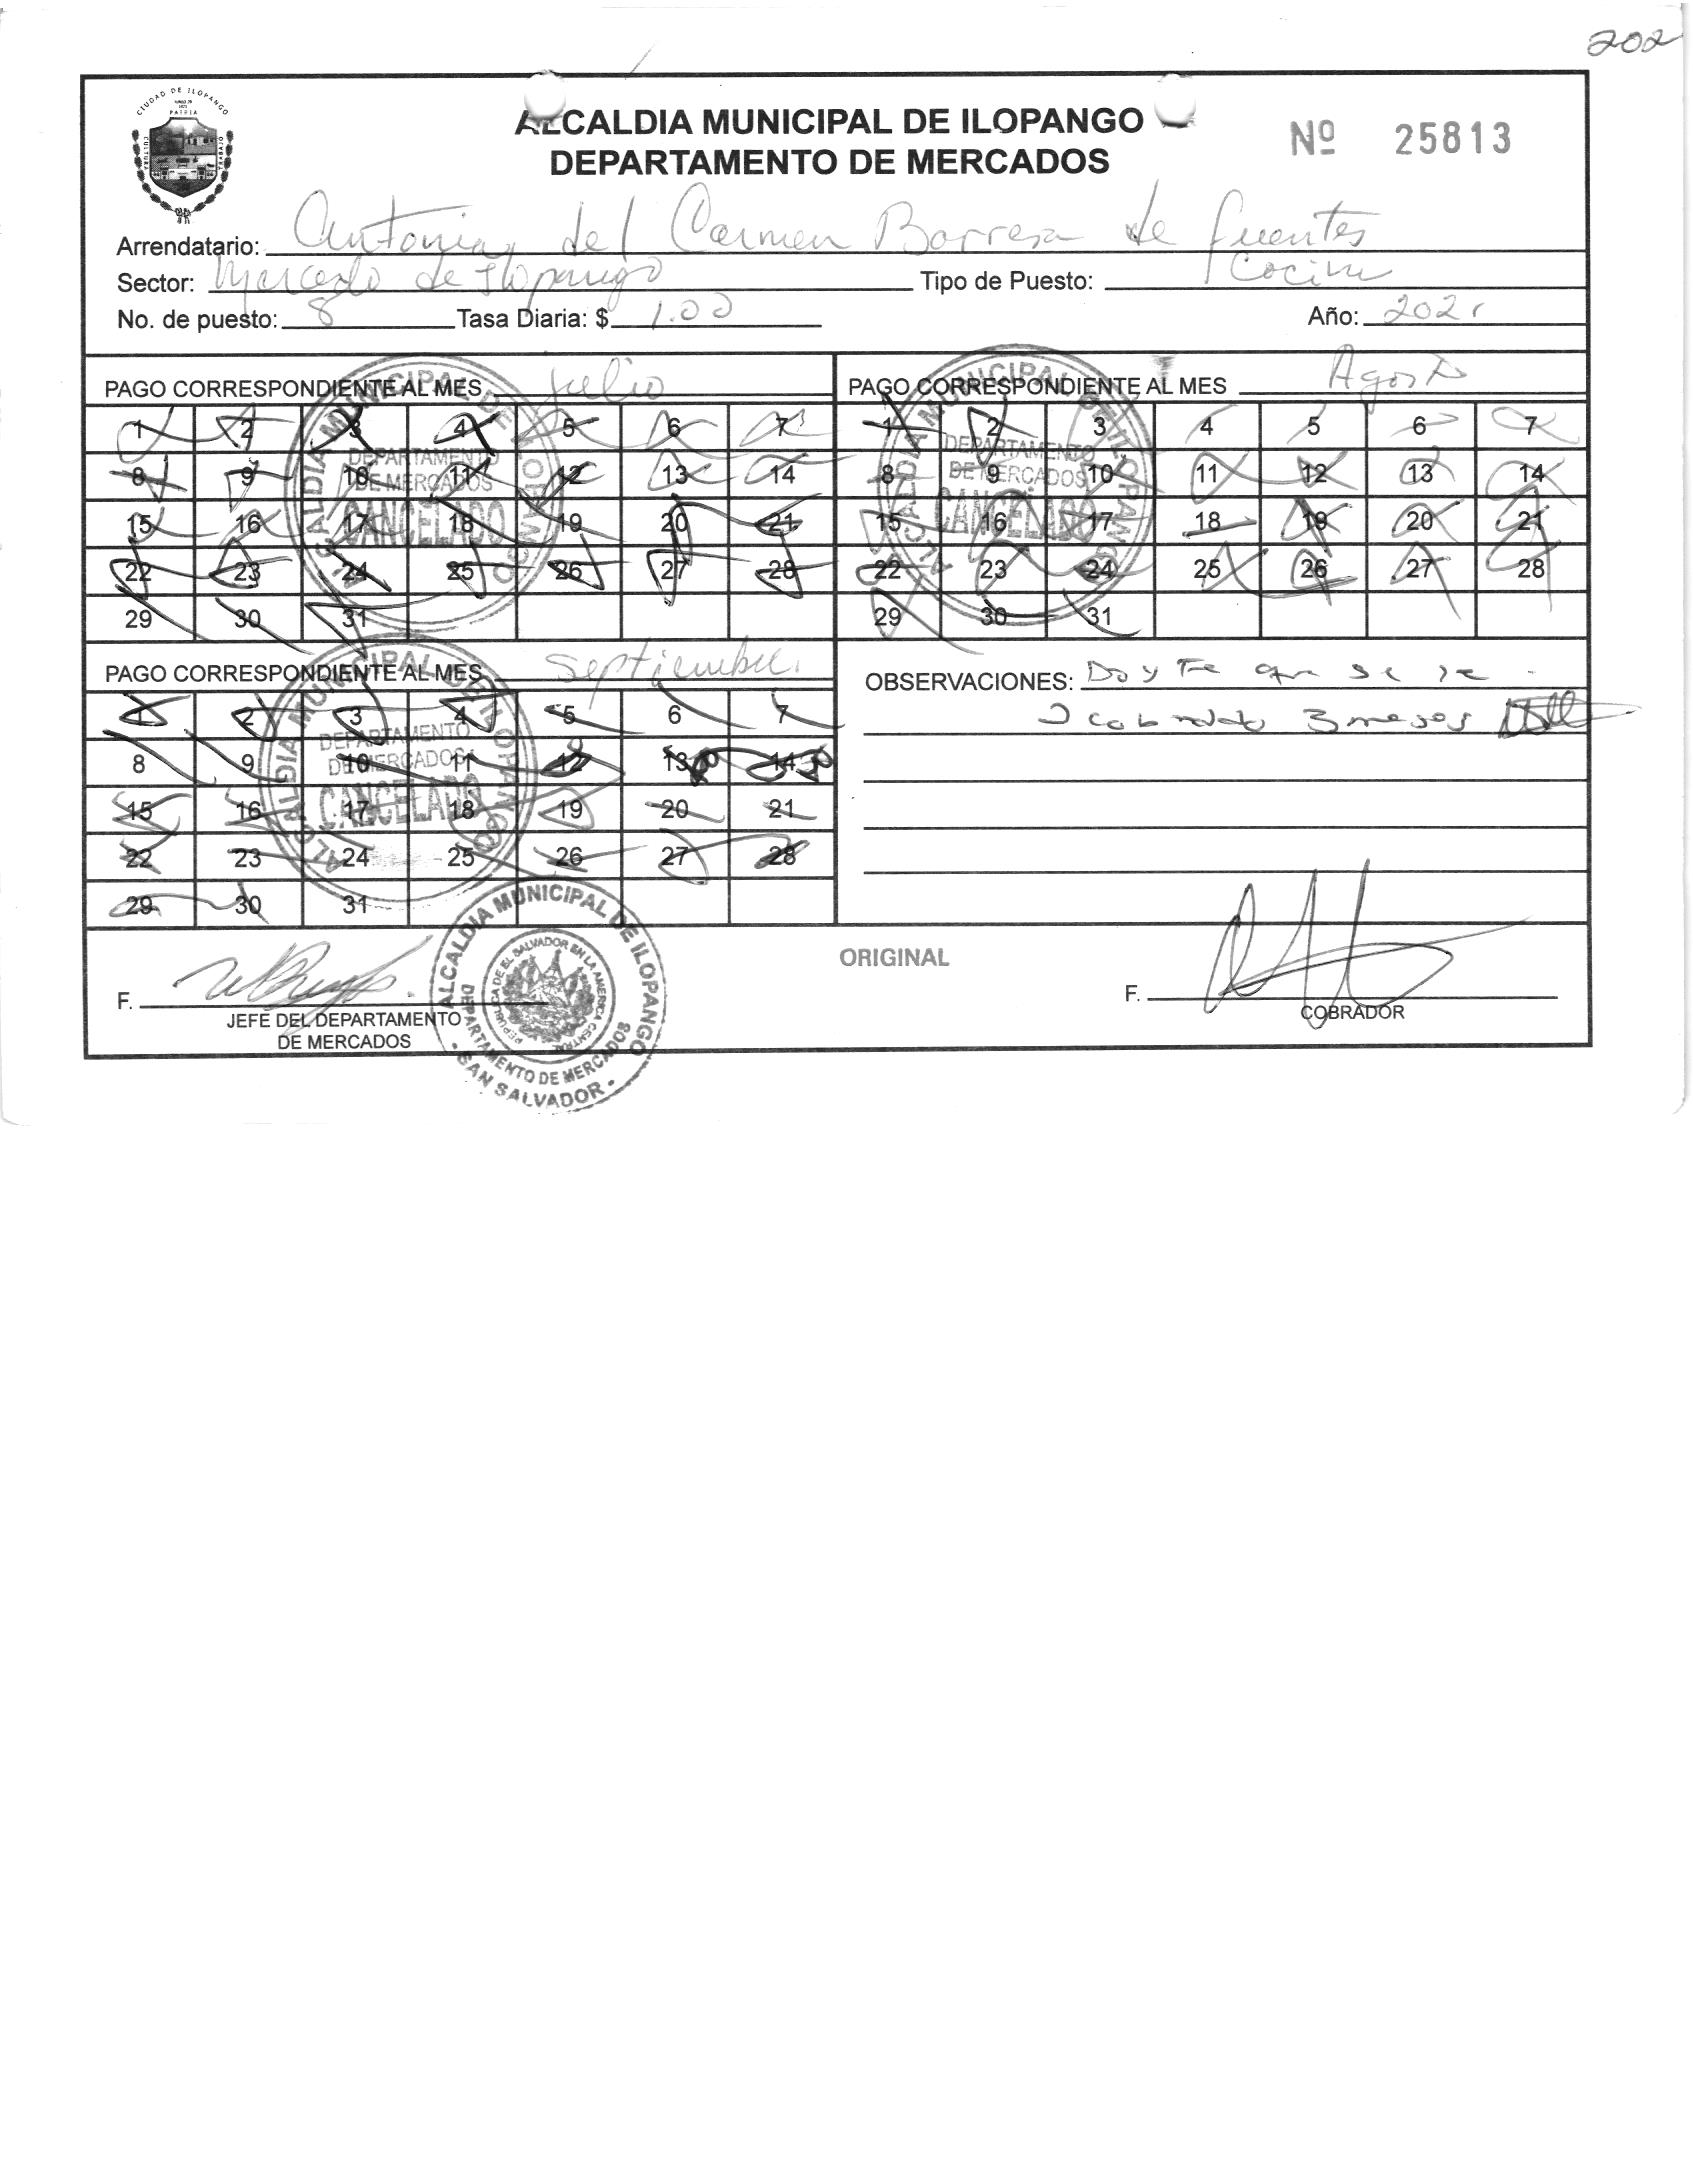 202
CIUDAD DE ILOPANGO
PATRIA
CULTURA
TRABAJO
ALCALDIA MUNICIPAL DE ILOPANGO
DEPARTAMENTO DE MERCADOS
Nº 25813
Arrendatario: Antonia del Carmen Barrera de fuentes
Sector: Mercado de Ilopango Tipo de Puesto: Cocina
No. de puesto: 8 Tasa Diaria: $ 1.00 Año: 2021
PAGO CORRESPONDIENTE AL MES Julio
1 2 3 4 5 6 7
8 9 10 11 12 13 14
15 16 17 18 19 20 21
22 23 24 25 26 27 28
29 30 31
ALCALDIA MUNICIPAL DE ILOPANGO
DEPARTAMENTO
DE MERCADOS
CANCELADO
PAGO CORRESPONDIENTE AL MES Agosto
1 2 3 4 5 6 7
8 9 10 11 12 13 14
15 16 17 18 19 20 21
22 23 24 25 26 27 28
29 30 31
ALCALDIA MUNICIPAL DE ILOPANGO
DEPARTAMENTO
DE MERCADOS
CANCELADO
PAGO CORRESPONDIENTE AL MES Septiembre.
1 2 3 4 5 6 7
8 9 10 11 12 13 14
15 16 17 18 19 20 21
22 23 24 25 26 27 28
29 30 31
ALCALDIA MUNICIPAL DE ILOPANGO
DEPARTAMENTO
DE MERCADOS
CANCELADO
OBSERVACIONES: Doy Fe que se le
3 meses
F.
JEFE DEL DEPARTAMENTO
DE MERCADOS
ALCALDIA MUNICIPAL DE ILOPANGO
REPUBLICA DE EL SALVADOR EN LA AMERICA CENTRAL
DEPARTAMENTO DE MERCADOS
- SAN SALVADOR -
ORIGINAL
F.
COBRADOR